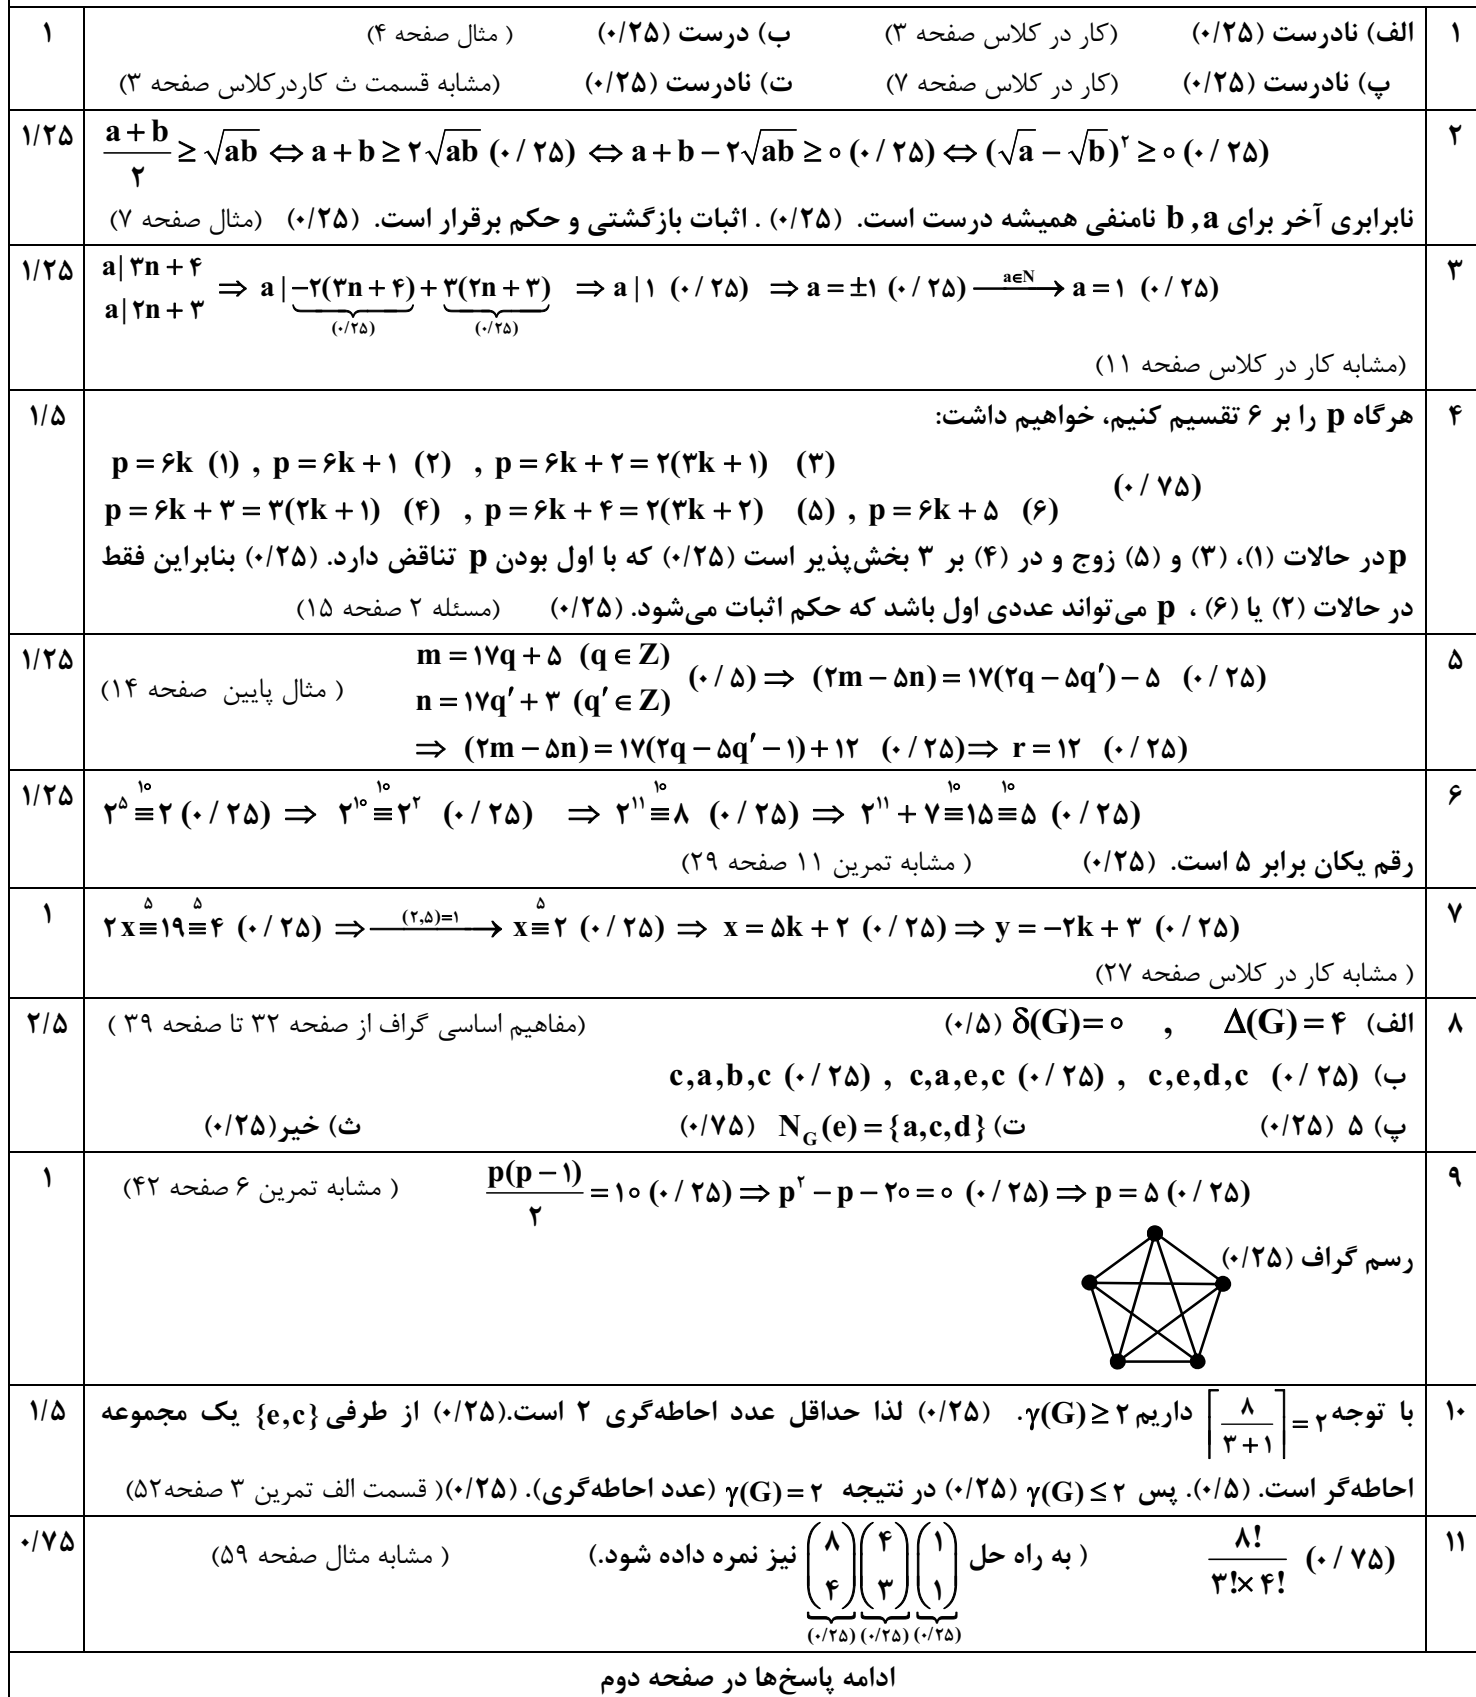 ۱ الف) نادرست (۰/۲۵) (کار در کلاس صفحه ۳) ب) درست (۰/۲۵) ( مثال صفحه ۴) ۱
پ) نادرست (۰/۲۵) (کار در کلاس صفحه ۷) ت) نادرست (۰/۲۵) (مشابه قسمت ث کاردرکلاس صفحه ۳)
۲ (a+b)/۲ ≥ √ab ⇔ a+b ≥ ۲√ab (۰/۲۵) ⇔ a+b−۲√ab ≥ ۰ (۰/۲۵) ⇔ (√a−√b)^۲ ≥ ۰ (۰/۲۵) ۱/۲۵
نابرابری آخر برای a , b نامنفی همیشه درست است. (۰/۲۵) . اثبات بازگشتی و حکم برقرار است. (۰/۲۵) (مثال صفحه ۷)
۳ a|۳n+۴ a|۲n+۳ ⇒ a|−۲(۳n+۴) (۰/۲۵) +۳(۲n+۳) (۰/۲۵) ⇒ a|۱ (۰/۲۵) ⇒ a=±۱ (۰/۲۵) —a∈N→ a=۱ (۰/۲۵) ۱/۲۵
(مشابه کار در کلاس صفحه ۱۱)
۴ هرگاه p را بر ۶ تقسیم کنیم، خواهیم داشت: ۱/۵
p=۶k (۱) , p=۶k+۱ (۲) , p=۶k+۲=۲(۳k+۱) (۳)
(۰/۷۵)
p=۶k+۳=۳(۲k+۱) (۴) , p=۶k+۴=۲(۳k+۲) (۵) , p=۶k+۵ (۶)
p در حالات (۱)، (۳) و (۵) زوج و در (۴) بر ۳ بخش‌پذیر است (۰/۲۵) که با اول بودن p تناقض دارد. (۰/۲۵) بنابراین فقط
در حالات (۲) یا (۶) ، p می‌تواند عددی اول باشد که حکم اثبات می‌شود. (۰/۲۵) (مسئله ۲ صفحه ۱۵)
۵ m=۱۷q+۵ (q∈Z) n=۱۷q′+۳ (q′∈Z) (۰/۵) ⇒ (۲m−۵n)=۱۷(۲q−۵q′)−۵ (۰/۲۵) ( مثال پایین صفحه ۱۴) ۱/۲۵
⇒ (۲m−۵n)=۱۷(۲q−۵q′−۱)+۱۲ (۰/۲۵) ⇒ r=۱۲ (۰/۲۵)
۶ ۲^۵ ≡^۱۰ ۲ (۰/۲۵) ⇒ ۲^۱۰ ≡^۱۰ ۲^۲ (۰/۲۵) ⇒ ۲^۱۱ ≡ ۸ (۰/۲۵) ⇒ ۲^۱۱+۷ ≡^۱۰ ۱۵ ≡^۱۰ ۵ (۰/۲۵) ۱/۲۵
رقم یکان برابر ۵ است. (۰/۲۵) ( مشابه تمرین ۱۱ صفحه ۲۹)
۷ ۲x ≡^۵ ۱۹ ≡^۵ ۴ (۰/۲۵) ⇒ —(۲,۵)=۱→ x ≡^۵ ۲ (۰/۲۵) ⇒ x=۵k+۲ (۰/۲۵) ⇒ y=−۲k+۳ (۰/۲۵) ۱
( مشابه کار در کلاس صفحه ۲۷)
۸ الف) Δ(G)=۴ , δ(G)=۰ (۰/۵) (مفاهیم اساسی گراف از صفحه ۳۲ تا صفحه ۳۹ ) ۲/۵
ب) c,a,b,c (۰/۲۵) , c,a,e,c (۰/۲۵) , c,e,d,c (۰/۲۵)
پ) ۵ (۰/۲۵) ت) N_G(e)={a,c,d} (۰/۷۵) ث) خیر(۰/۲۵)
۹ p(p−۱)/۲=۱۰ (۰/۲۵) ⇒ p^۲−p−۲۰=۰ (۰/۲۵) ⇒ p=۵ (۰/۲۵) ( مشابه تمرین ۶ صفحه ۴۲) ۱
رسم گراف (۰/۲۵)
۱۰ با توجه ⌈۸/(۳+۱)⌉=۲ داریم γ(G)≥۲. (۰/۲۵) لذا حداقل عدد احاطه‌گری ۲ است.(۰/۲۵) از طرفی {e,c} یک مجموعه ۱/۵
احاطه‌گر است. (۰/۵). پس γ(G)≤۲ (۰/۲۵) در نتیجه γ(G)=۲ (عدد احاطه‌گری). (۰/۲۵)( قسمت الف تمرین ۳ صفحه۵۲)
۱۱ ۸!/(۳!×۴!) (۰/۷۵) ( به راه حل (۸ ۴)(۴ ۳)(۱ ۱) نیز نمره داده شود.) ( مشابه مثال صفحه ۵۹) ۰/۷۵
(۰/۲۵) (۰/۲۵) (۰/۲۵)
ادامه پاسخ‌ها در صفحه دوم